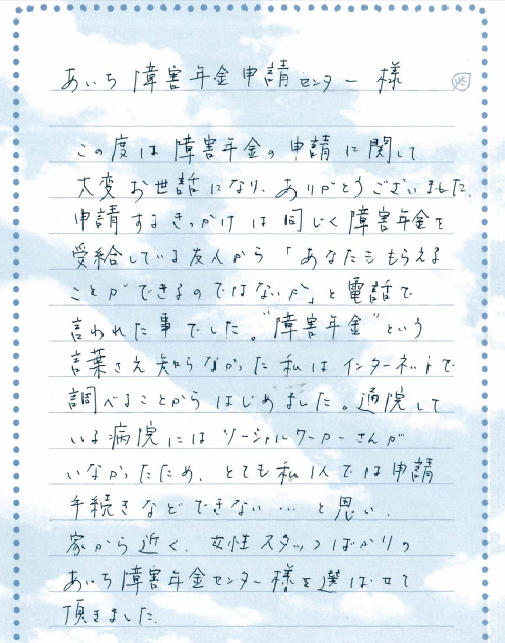 あいち障害年金申請センター 様
この度は障害年金の申請に関して
大変お世話になり、ありがとうございました。
申請するきっかけは同じく障害年金を
受給している友人から「あなたももらえる
ことができるのではないか」と電話で
言われた事でした。"障害年金"という
言葉さえ知らなかった私はインターネットで
調べることからはじめました。通院して
いる病院にはソーシャルワーカーさんが
いなかったため、とても私1人では申請
手続きなどできない…と思い、
家から近く、女性スタッフばかりの
あいち障害年金センター様を選ばせて
頂きました。